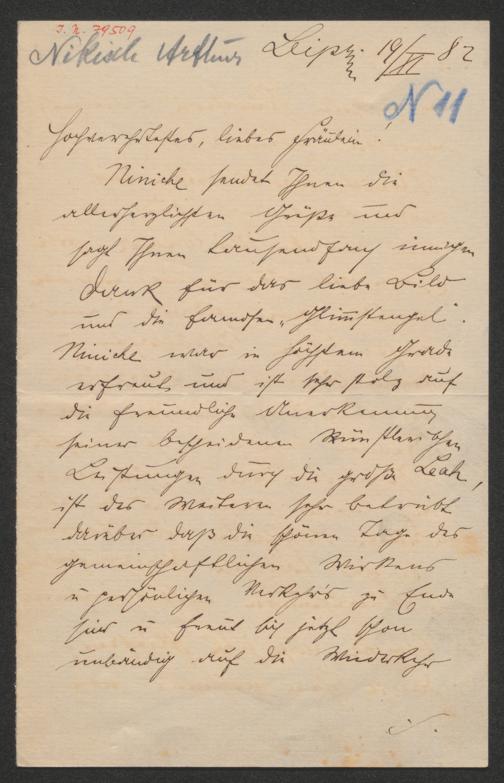 I. N. 79509
Nikisch Arthur
Leipz. 19/XI 82
N 11
Hochverehrtestes, liebes Fräulein!
Ninicke sendet Ihnen die
allerherzlichsten Grüße und
sagt Ihnen tausendfach innigen
Dank für das liebe Bild
und die famosen „Glimmstengel".
Ninicke war in höchstem Grade
erfreut und ist sehr stolz auf
die freundliche Anerkennung
seiner bescheidenen künstlerischen
Leistungen durch die große Leah,
ist des Weiteren sehr betrübt
darüber daß die schönen Tage des
gemeinschaftlichen Wirkens
u persönlichen Verkehr's zu Ende
sind u freut sich jetzt schon
unbändig auf die Wiederkehr